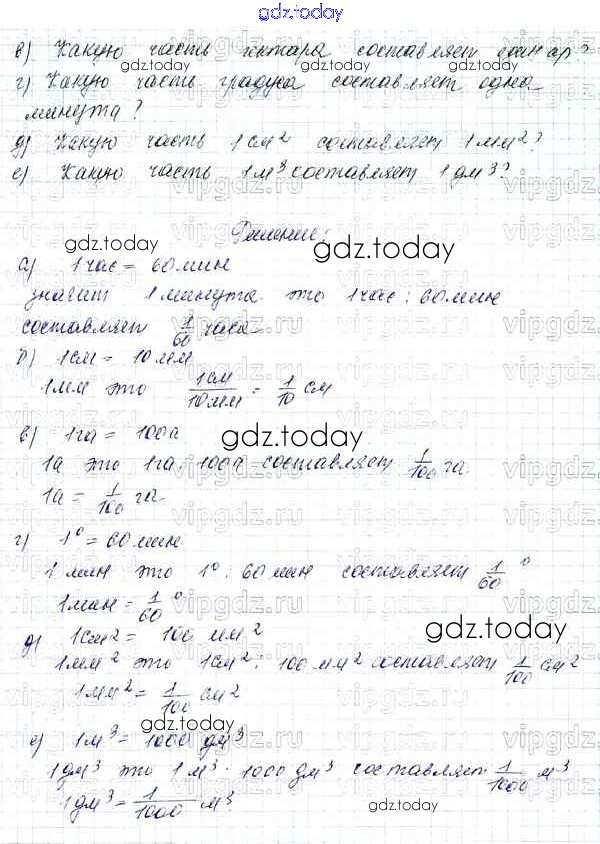 gdz.today
в) Какую часть гектара составляет один ар?
gdz.today
gdz.today
г) Какую часть градуса составляет одна
минута?
д) Какую часть 1 см² составляет 1 мм²?
е) Какую часть 1 м³ составляет 1 дм³?
Решение:
gdz.today
gdz.today
а) 1 час = 60 мин
значит 1 минута это 1 час : 60 мин
составляет 1/60 часа
б) 1 см = 10 мм
1 мм это 1см/10мм = 1/10 см
в) 1 га = 100 а
gdz.today
1а это 1га : 100а составляет 1/100 га.
1а = 1/100 га.
г) 1° = 60 мин
1 мин это 1° : 60 мин составляет 1/60 °
1 мин = 1/60 °
д) 1 см² = 100 мм²
gdz.today
1 мм² это 1 см² : 100 мм² составляет 1/100 см²
1 мм² = 1/100 см²
gdz.today
е) 1 м³ = 1000 дм³
1 дм³ это 1 м³ : 1000 дм³ составляет 1/1000 м³
1 дм³ = 1/1000 м³.
gdz.today
vipgdz.ru